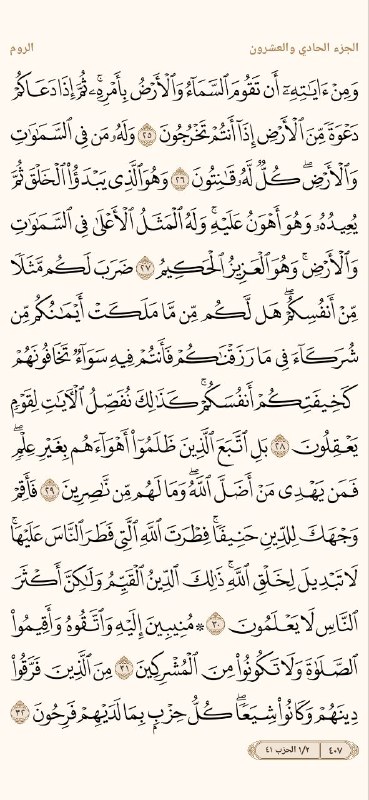 الجزء الحادي والعشرون الروم
وَمِنْ ءَايَٰتِهِۦٓ أَن تَقُومَ ٱلسَّمَآءُ وَٱلْأَرْضُ بِأَمْرِهِۦ ۚ ثُمَّ إِذَا دَعَاكُمْ
دَعْوَةً مِّنَ ٱلْأَرْضِ إِذَآ أَنتُمْ تَخْرُجُونَ ٢٥ وَلَهُۥ مَن فِى ٱلسَّمَٰوَٰتِ
وَٱلْأَرْضِ ۖ كُلٌّ لَّهُۥ قَٰنِتُونَ ٢٦ وَهُوَ ٱلَّذِى يَبْدَؤُا۟ ٱلْخَلْقَ ثُمَّ
يُعِيدُهُۥ وَهُوَ أَهْوَنُ عَلَيْهِ ۚ وَلَهُ ٱلْمَثَلُ ٱلْأَعْلَىٰ فِى ٱلسَّمَٰوَٰتِ
وَٱلْأَرْضِ ۚ وَهُوَ ٱلْعَزِيزُ ٱلْحَكِيمُ ٢٧ ضَرَبَ لَكُم مَّثَلًا
مِّنْ أَنفُسِكُمْ ۖ هَل لَّكُم مِّن مَّا مَلَكَتْ أَيْمَٰنُكُم مِّن
شُرَكَآءَ فِى مَا رَزَقْنَٰكُمْ فَأَنتُمْ فِيهِ سَوَآءٌ تَخَافُونَهُمْ
كَخِيفَتِكُمْ أَنفُسَكُمْ ۚ كَذَٰلِكَ نُفَصِّلُ ٱلْءَايَٰتِ لِقَوْمٍ
يَعْقِلُونَ ٢٨ بَلِ ٱتَّبَعَ ٱلَّذِينَ ظَلَمُوٓا۟ أَهْوَآءَهُم بِغَيْرِ عِلْمٍ ۖ
فَمَن يَهْدِى مَنْ أَضَلَّ ٱللَّهُ ۖ وَمَا لَهُم مِّن نَّٰصِرِينَ ٢٩ فَأَقِمْ
وَجْهَكَ لِلدِّينِ حَنِيفًا ۚ فِطْرَتَ ٱللَّهِ ٱلَّتِى فَطَرَ ٱلنَّاسَ عَلَيْهَا ۚ
لَا تَبْدِيلَ لِخَلْقِ ٱللَّهِ ۚ ذَٰلِكَ ٱلدِّينُ ٱلْقَيِّمُ وَلَٰكِنَّ أَكْثَرَ
ٱلنَّاسِ لَا يَعْلَمُونَ ٣٠ ۞ مُنِيبِينَ إِلَيْهِ وَٱتَّقُوهُ وَأَقِيمُوا۟
ٱلصَّلَوٰةَ وَلَا تَكُونُوا۟ مِنَ ٱلْمُشْرِكِينَ ٣١ مِنَ ٱلَّذِينَ فَرَّقُوا۟
دِينَهُمْ وَكَانُوا۟ شِيَعًا ۖ كُلُّ حِزْبٍۭ بِمَا لَدَيْهِمْ فَرِحُونَ ٣٢
٤٠٧ ١/٢ الحزب ٤١